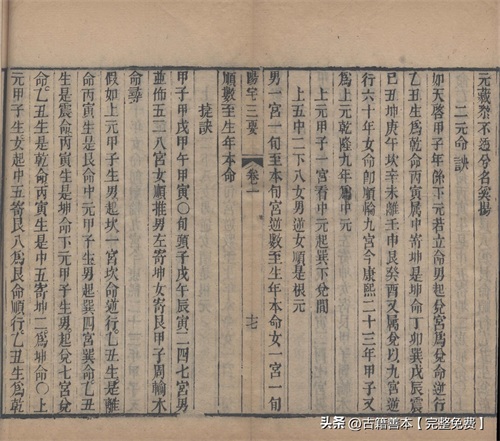 不過分名
元命訣
如天啓甲子年係下元若立命男起兌宮爲兌命逆行
乙丑生爲乾命丙寅屬中寄坤是坤命丁卯巽戊辰震
坤庚午坎辛未離壬申艮癸酉又屬兌以九宮逆
行六十年女命卽順輪九宮今康熙二十三年甲子又
爲上元乾隆九年屬中元
上元甲子一宮看中元起巽下兌間
上五中二下八女男逆女順是根元
男一宮一旬本旬宮逆數至生年本命女一宮一旬
陽宅三要 卷一 十七
順數至生年本命
捷訣
甲子甲戌甲午甲寅〇旬頭子戌午辰寅一四七宮男
並佈五二八宮女順推男左寄坤女寄艮甲子周輪本
命尋
假如上元甲子生男起坎一宮坎命逆行乙丑生是離
命丙寅生是艮命中元甲子生男起巽四宮巽命乙丑
生是震命丙寅生是坤命下元甲子生男起兌七宮兌
命乙丑生是乾命丙寅生是中五寄坤二爲坤命〇上
元甲子生女起中五寄艮八爲艮命順行乙丑生爲乾
头条 @古籍善本【完整免费】